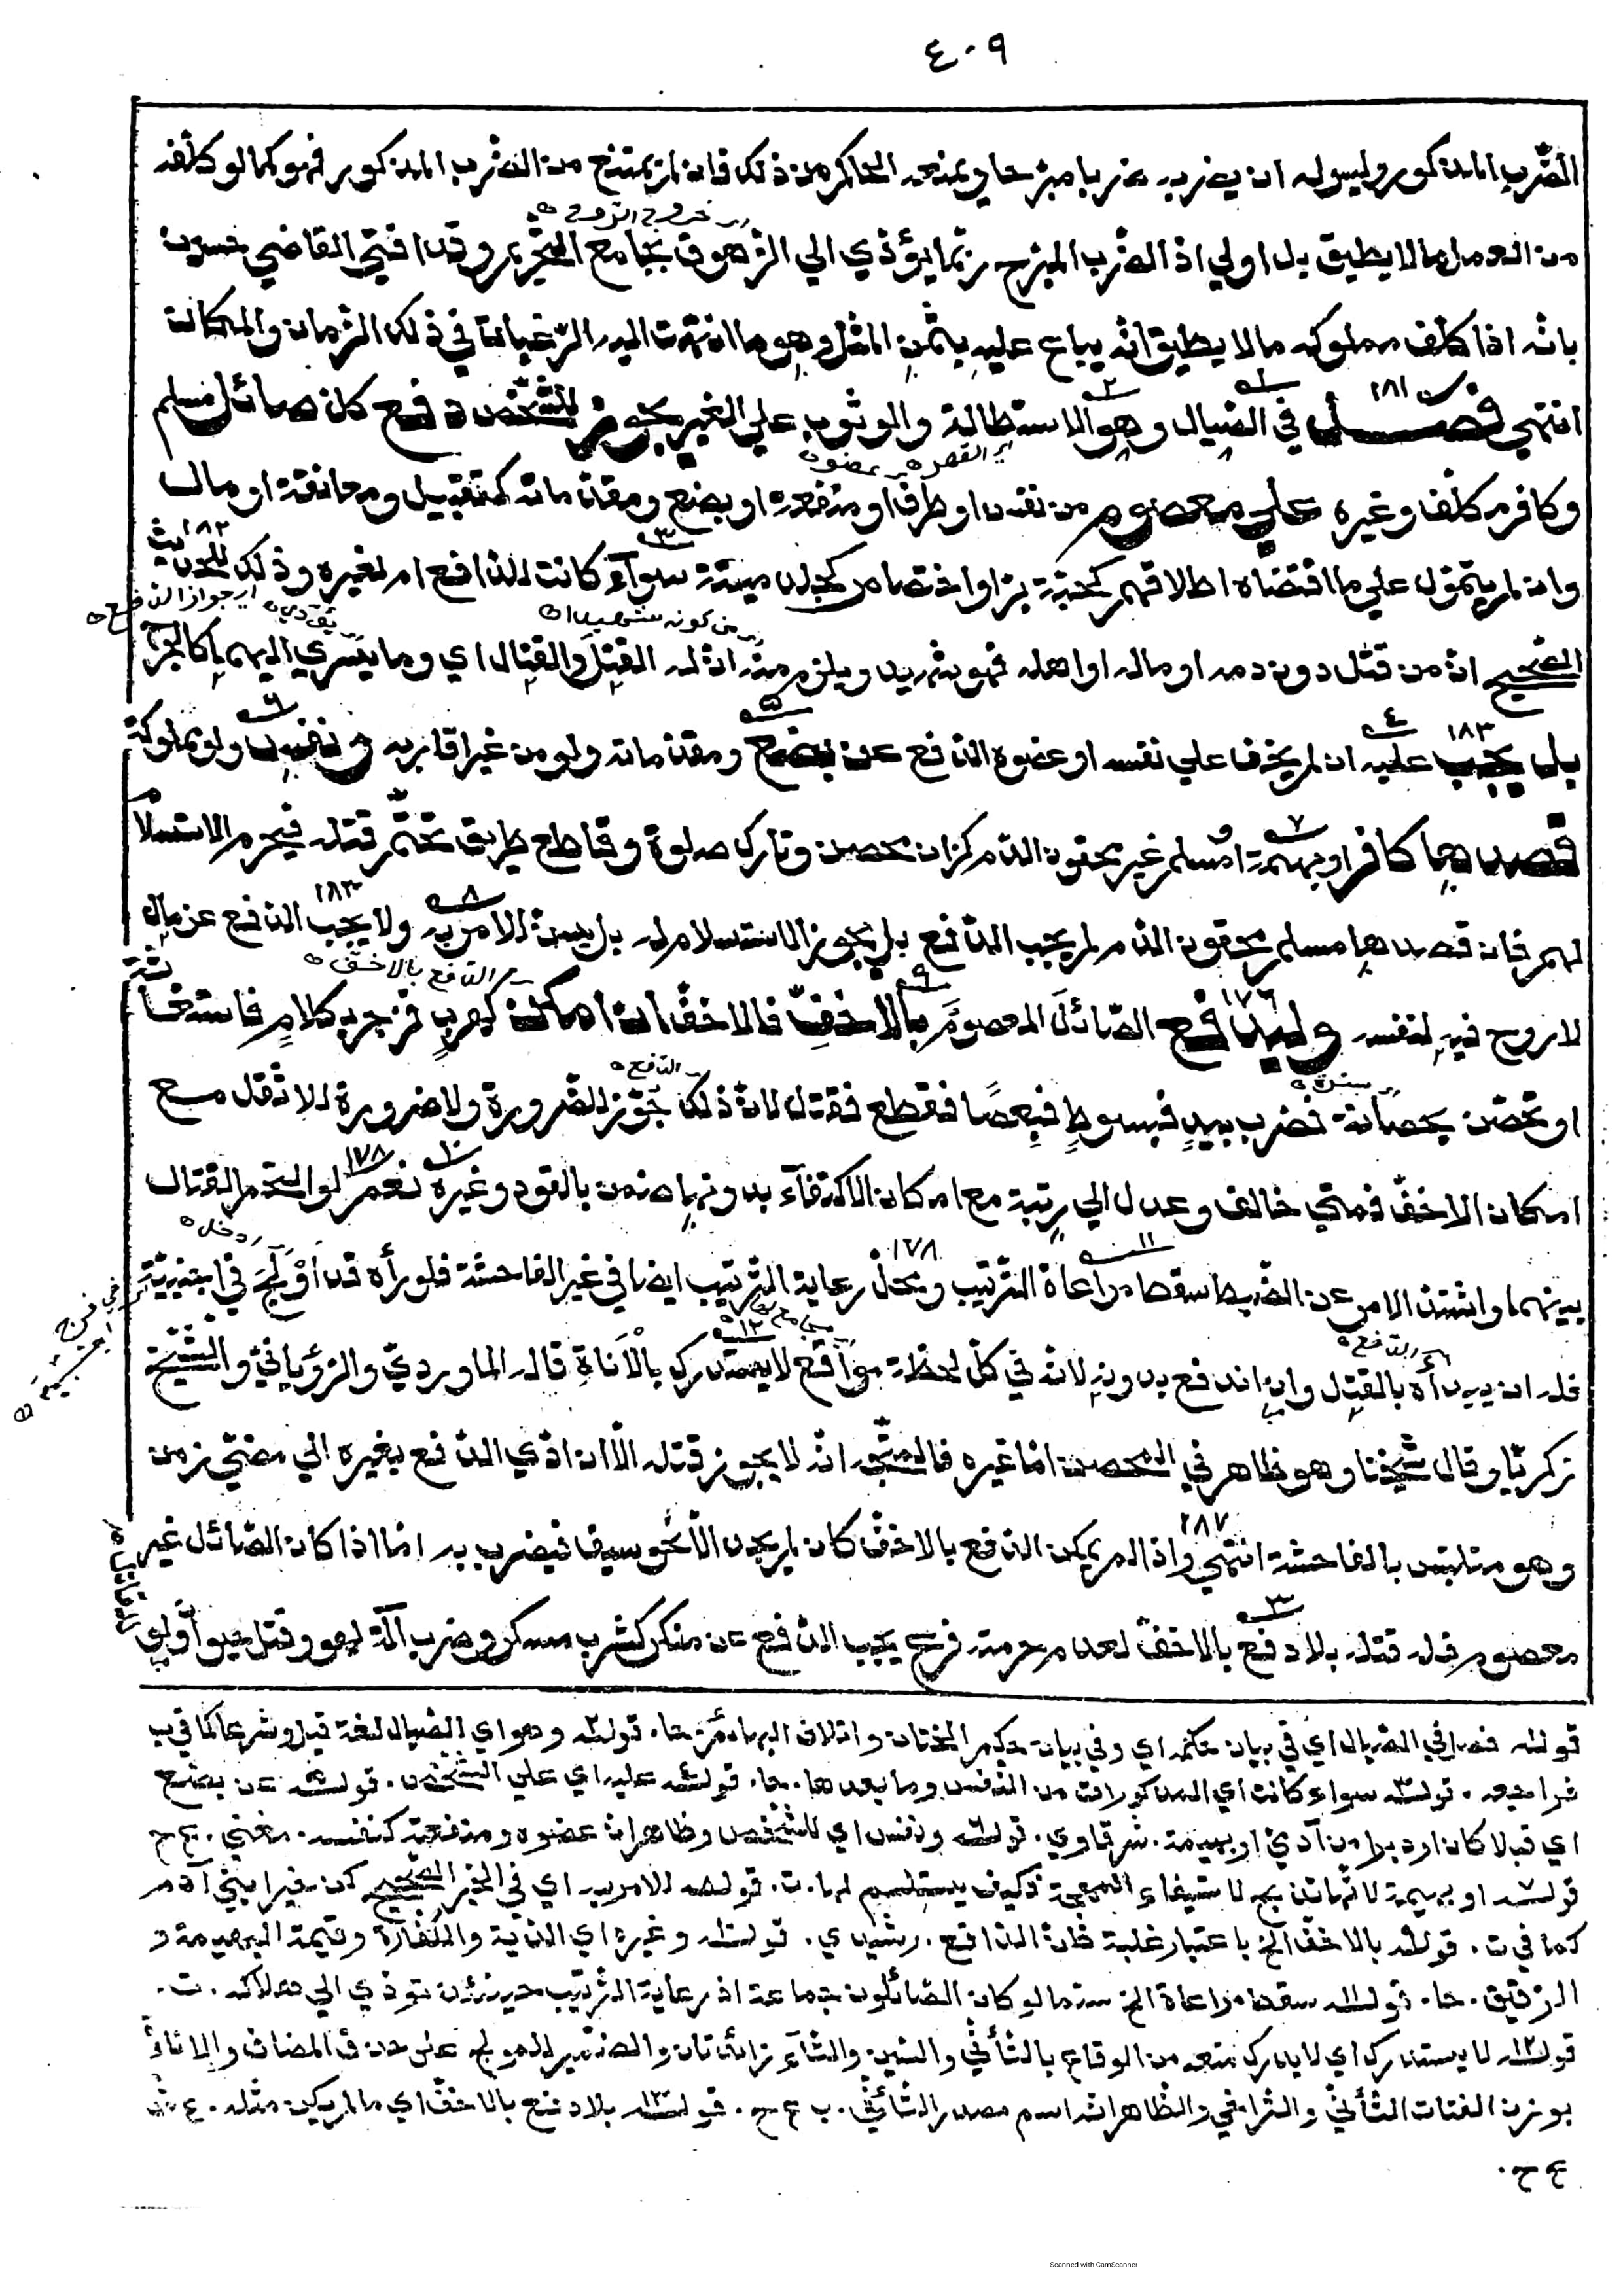 ٤٠٩
الضّرب المذكور وليس له ان يضربه ضربا مبرّحا ويمنعه الحاكم من ذلك فان لم يمتنع من الضّرب المذكور فهو كما لو كلّفه
ــ خروج الرّوح
من العمل ما لا يطيق بل اولي اذ الضّرب المبرّح ربّما يؤدّي الي الزّهوق بجامع التّحريم وقد افتي القاضي حسين
بانّه اذا كلّف مملوكه ما لا يطيق انّه يباع عليه بثمن المثل وهو ما انتهت اليه الرّغبات في ذلك الزّمان والمكان
انتهي فصـــل في الصّيال وهو الاستطالة والوثوب علي الغير يجوز للشّخص دفع كلّ صائل مسلم
وكافر مكلّف وغيره علي معصوم من نفس او طرف او منفعة او بضع ومقدّماته كتقبيل ومعانقة او مال
وان لم يتموّل علي ما اقتضاه اطلاقهم كحبّة برّ او اختصاص كجلد ميتة سوآء كانت للدّافع ام لغيره وذلك للحديث
اي جواز الدّفع
يؤدّي
من كونه شهيدا
الصّحيح انّ من قتل دون دمه او ماله او اهله فهو شهيد ويلزم منه انّ له القتل والقتال اي وما يسري اليهما كالجرح
بل يجب عليه ان لم يخف علي نفسه او عضوه الدّفع عن بضع ومقدّماته ولو من غير اقاربه ونفس ولو مملوكة
قصدها كافر او بهيمة او مسلم غير محقون الدّم كزان محصن وتارك صلوة وقاطع طريق تحتّم قتله فيحرم الاستسلام
لهم فان قصدها مسلم محقون الدّم لم يجب الدّفع بل يجوز الاستسلام له بل يسنّ للامر به ولا يجب الدّفع عن مال
الدّفع بالاخفّ
لا روح فيه لنفسه وليدفع الصّائل المعصوم بالاخفّ فالاخفّ ان امكن كهرب فزجر بكلام فاستغاثة
او تحصّن بحصانة فضرب بيد فبسوط فبعصا فقطع فقتل لانّ ذلك جوّز للضّرورة ولا ضرورة للاثقل مع
الدّفع
امكان الاخفّ فمتي خالف وعدل الي رتبة مع امكان الاكتفآء بدونها ضمن بالقود وغيره نعم لو التحم القتال
بينهما واشتدّ الامر عن الضّبط سقط مراعاة التّرتيب ومحلّ رعاية التّرتيب ايضا في غير الفاحشة فلو رأه قد اولج في اجنبيّة
في فرج اجنبيّة
الدّفع
فله ان يبدأه بالقتل وان اندفع بدونه لانّه في كلّ لحظة مواقع لا يستدرك بالاناة قاله الماورديّ والرّؤيانيّ والشّيخ
زكريّا وقال شيخنا وهو ظاهر في المحصن امّا غيره فالمتّجه انّه لا يجوز قتله الّا ان ادّي الدّفع بغيره الي مضيّ زمن
وهو متلبّس بالفاحشة انتهي واذا لم يمكن الدّفع بالاخفّ كان لم يجد الّا نحو سيف فيضرب به امّا اذا كان الصّائل غير
معصوم فله قتله بلا دفع بالاخفّ لعدم حرمته فرع يجب الدّفع عن منكر كشرب مسكر وضرب آلة لهو وقتل حيوان ولو
للقاتل
قوله فصل في الصّيال اي في بيان حكمه اي وفي بيان حكم الختان واتلاف البهائم. حا. قوله وهو اي الصّيال لغة قيل وشرعا كما في ب
فراجعه. قوله سواء كانت اي المذكورات من النّفس وما بعدها. حا. قوله عليه اي علي الشّخص. قوله عن بضع
اي قبلا كان او دبرا من آدميّ او بهيمة. شرقاوي. قوله ونفس اي للشّخص وظاهر انّ عضوه ومنفعته كنفسه. مغني. ع ح
قوله او بهيمة لانّها تذبح لاستيفاء المهجة فكيف يستسلم لها. ت. قوله للامر به اي في الخبر الصّحيح كن خير ابني آدم
كما في ت. قوله بالاخفّ الخ باعتبار غلبة ظنّ الدّافع. رشيدي. قوله وغيره اي الدّية والكفّارة وقيمة البهيمة و
الرّقيق. حا. قوله سقط مراعاة الخ ستما لو كان الصّائلون جماعة اذ رعاية التّرتيب حينئذ تؤدّي الي هلاكه. ت.
قوله لا يستدرك اي لا يدرك منعه من الوقاع بالتّأنّي والسّين والتّآء زائدتان والضّمير للمولج علي حذف المضاف والاناة
بوزن القنات التّأنّي والتّراخي والظّاهر انّه اسم مصدر التّأنّي. ب ع ح. قوله بلا دفع بالاخفّ اي ما لم يكن مثله. ع ش
ع ح.
Scanned with CamScanner